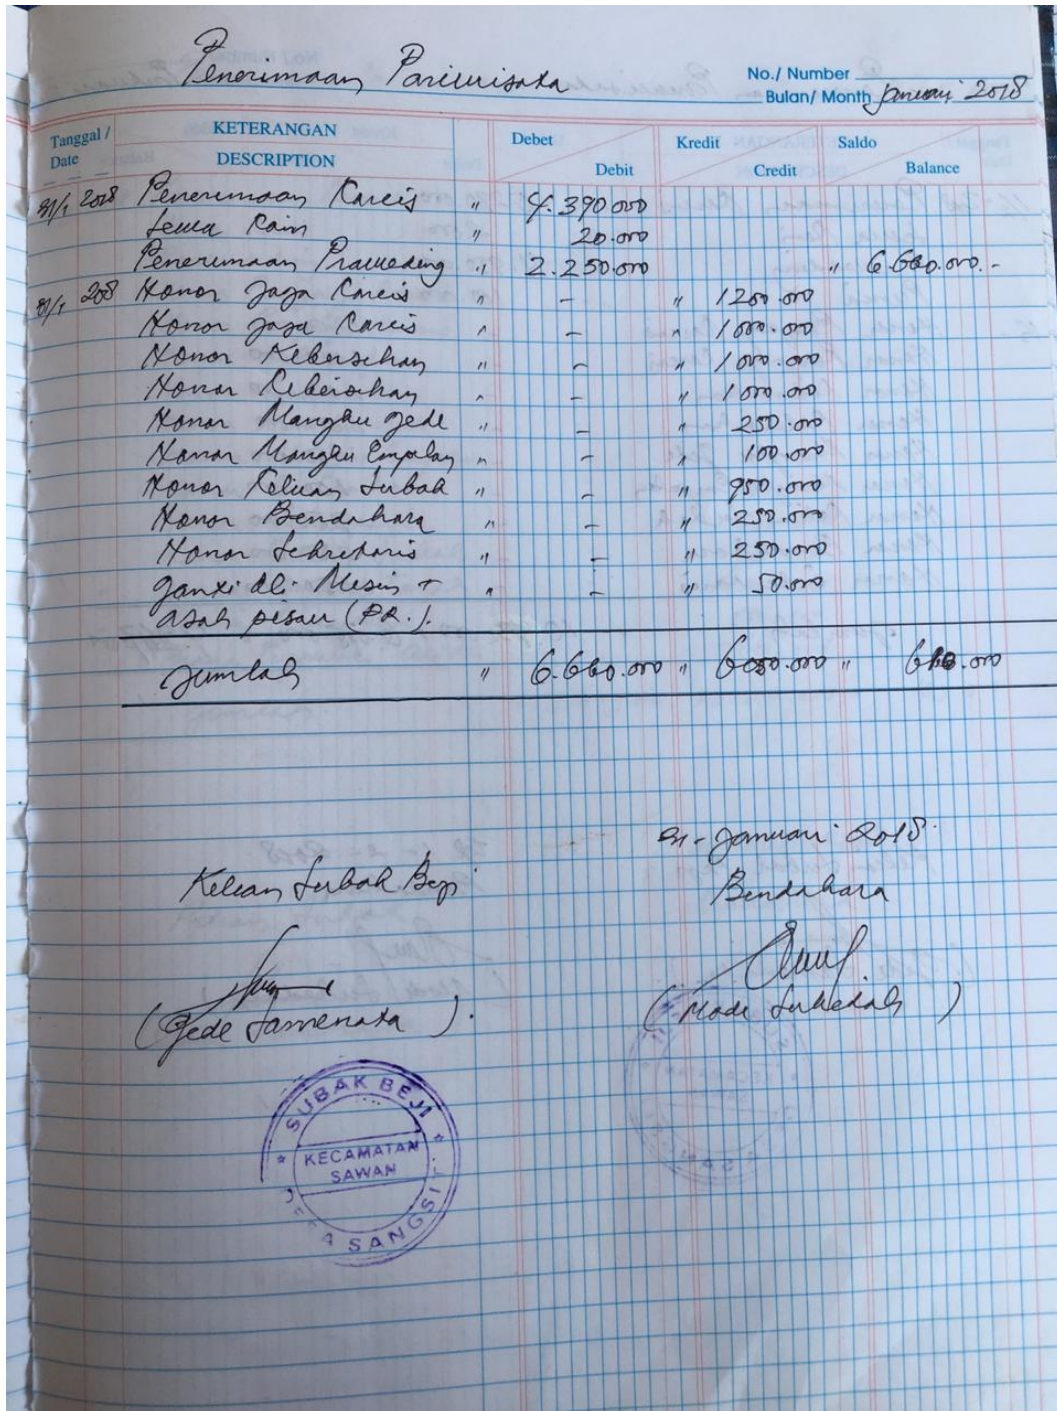 Penerimaan Pariwisata
No./ Number
Bulan/ Month Januari 2018
Tanggal / Date KETERANGAN DESCRIPTION Debet Debit Kredit Credit Saldo Balance
31/1 2018 Penerimaan Karcis " 4.390.000
Sewa Kain " 20.000
Penerimaan Praweding " 2.250.000 " 6.660.000.-
31/1 2018 Honor Jaga Karcis " - " 1200.000
Honor Jaga Karcis " - " 1000.000
Honor Kebersihan " - " 1000.000
Honor Kebersihan " - " 1000.000
Honor Mangku Gede " - " 250.000
Honor Mangku " - " 100.000
Honor Kelian Subak " - " 950.000
Honor Bendahara " - " 250.000
Honor Sekretaris " - " 250.000
Ganti Oli Mesin + " - " 50.000
asah pisau (PR.).
Jumlah " 6.660.000 " 6050.000 "
31-Januari 2018.
Kelian Subak Beji Bendahara
(Gede ) (Made )
SUBAK BEJI
KECAMATAN
SAWAN
DESA SANGSIT